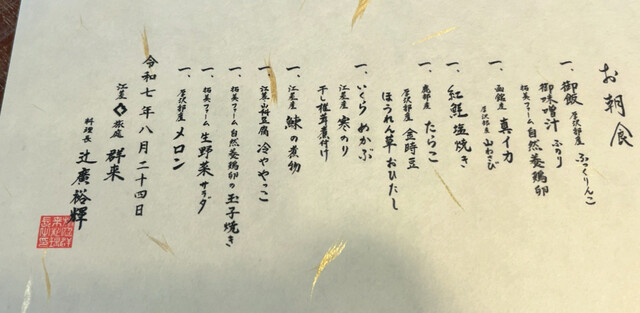 お朝食
一、御飯 厚沢部産 ふっくりんこ
御味噌汁 ふのり
拓美ファーム 自然養鶏卵
一、函館産 真イカ
厚沢部産 山わさび
一、紅鮭塩焼き
一、鹿部産 たらこ
厚沢部産 金時豆
ほうれん草おひたし
一、いくらめかぶ
江差産 寒のり
干し椎茸煮付け
一、江差産 鰊の煮物
一、江差山桝豆腐 冷ややっこ
一、拓美ファーム 自然養鶏卵の玉子焼き
一、拓美ファーム 生野菜サラダ
一、厚沢部産 メロン
令和七年八月二十四日
江差 旅庭 群来
料理長 辻廣裕輝